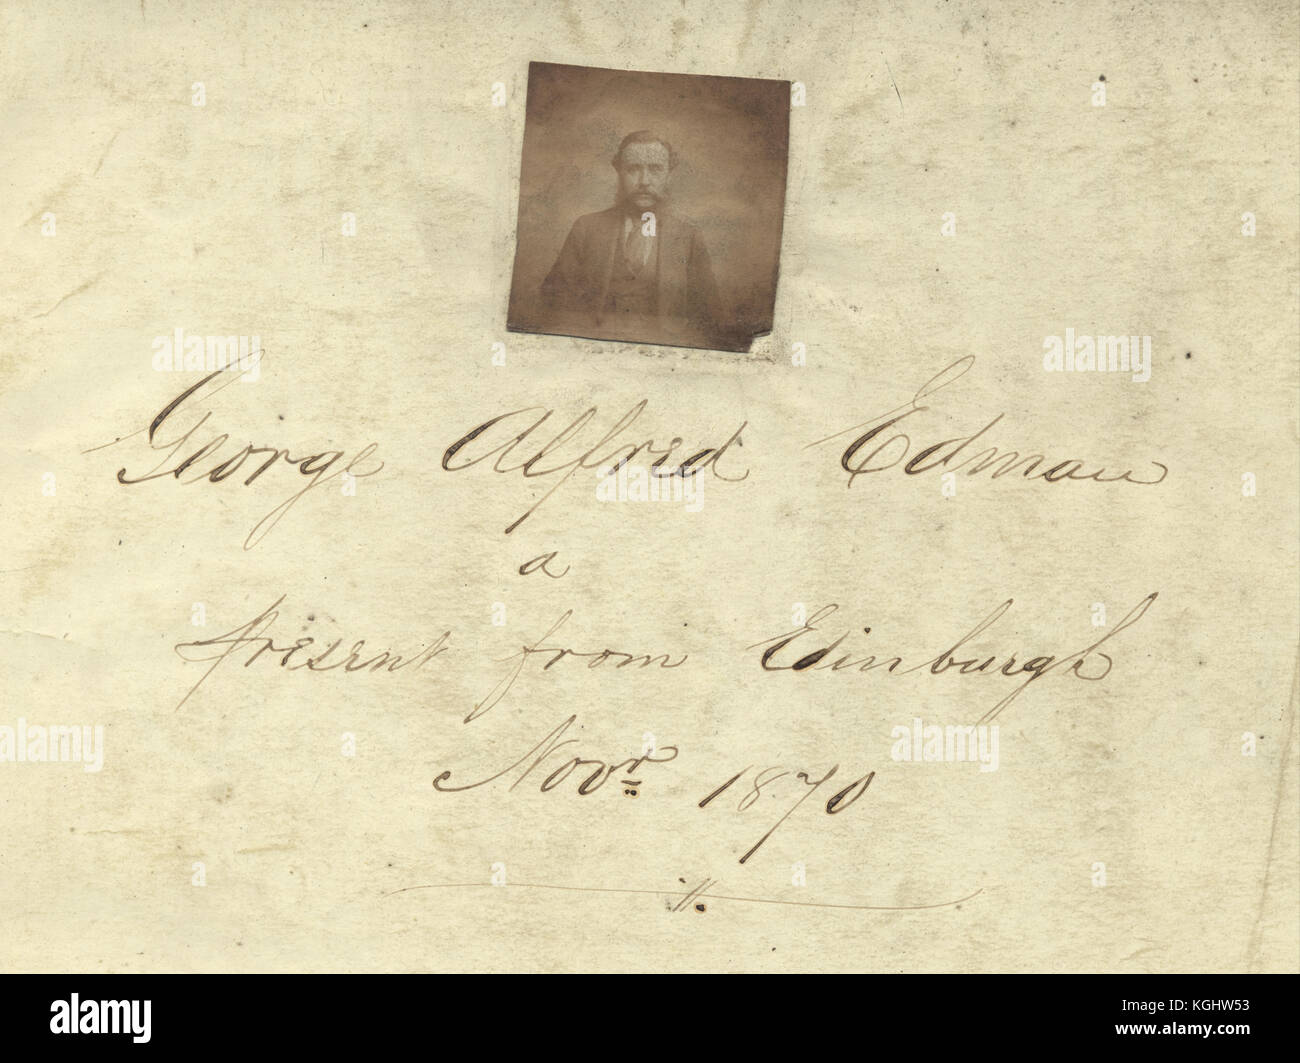 George Alfred Edman
a
present from Edinburgh
Novr. 1870
alamy
alamy
alamy
alamy
alamy
alamy
Image ID: KGHW53
www.alamy.com